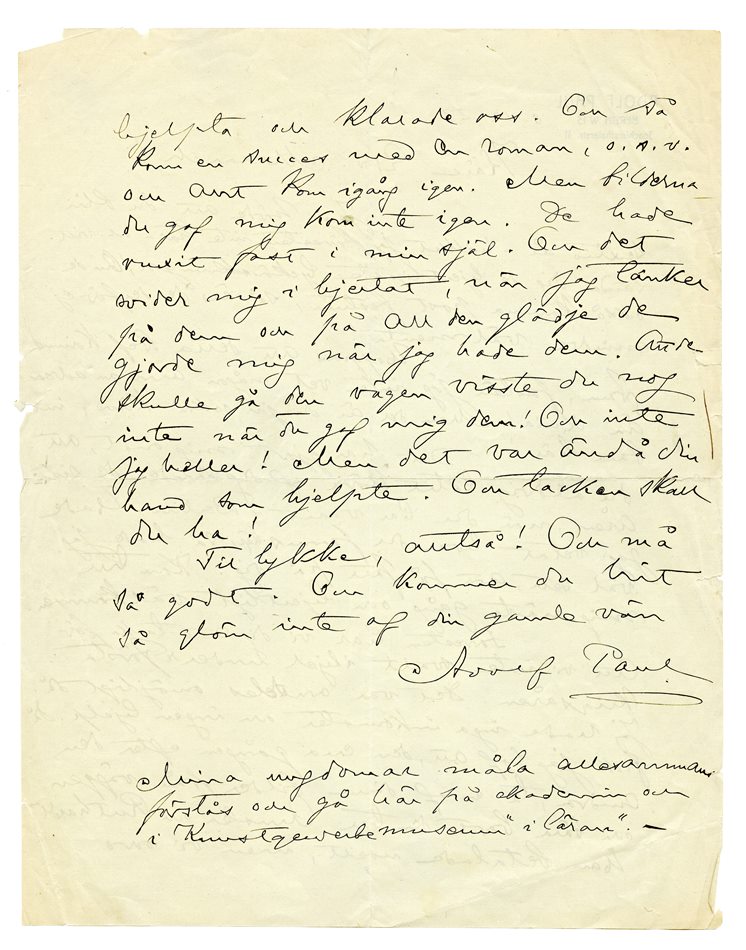 hjelpta och klarade oss. Och så
kom en succes med en roman, o.s.v.
och allt kom igång igen. Men bilderna
du gaf mig kom inte igen. De hade
vuxit fast i min själ. Och det
svider mig i hjertat, när jag tänker
på dem och på all den glädje de
gjorde mig när jag hade dem. Att de
skulle gå den vägen visste du nog
inte när du gaf mig dem! Och inte
jag heller! Men det var ändå din
hand som hjelpte. Och tacken skall
du ha!
Till lykke, alltså! Och må
så godt. Och kommer du hit
så glöm inte af din gamle vän
Adolf Paul
Mina ungdomar måla allesammans
förstås och gå här på akademin och
i "Kunstgewerbemuseum" i läran". –